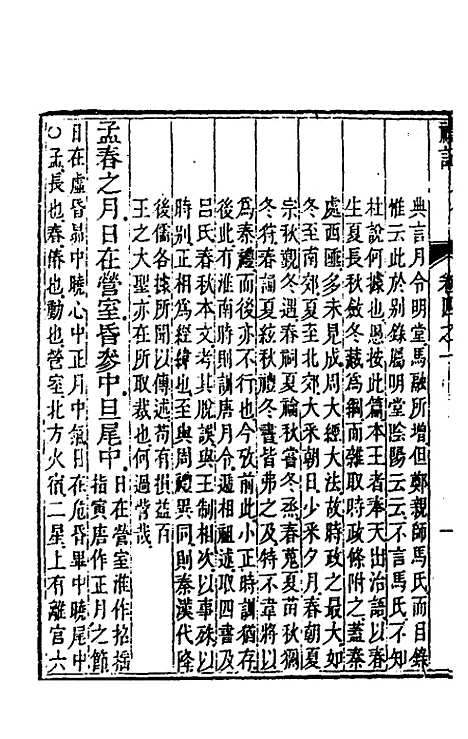 卷四之一
典言月令明堂馬融所增但鄭親師馬氏而目錄
惟云此於別錄屬明堂陰陽云云不言馬氏不知
杜說何據也恩按此篇本王者奉天出治語以春
生夏長秋斂冬藏爲綱而雜取時政條附之蓋秦
處西匽多未見成周大經大法故時政之最大如
冬至南郊夏日北郊大采朝日少采夕月春朝夏
宗秋覲冬遇春祠夏禴秋嘗冬烝春蒐夏苗秋獮
冬狩春詞夏絃秋禮冬書皆弗之及特不韋將以
爲秦禮而後亦不行也今攷前此小正時訓猶存
後此有淮南時則訓唐月令遞相祖述取四書及
呂氏春秋本文考其脫誤與王制相次以事殊以
時別正相爲經緯也至與周禮異同則秦漢代降
後儒各據所聞以傳述苟有損益百
王之大聖亦在所取裁也何過訾哉
孟春之月日在營室昏參中旦尾中
日在營室淮作招搖
指寅唐作正月之節
日在虛昏昴中曉心中正月中氣日在危昏畢中曉尾中
○孟長也春偆也動也營室北方火宿二星上有離宮六